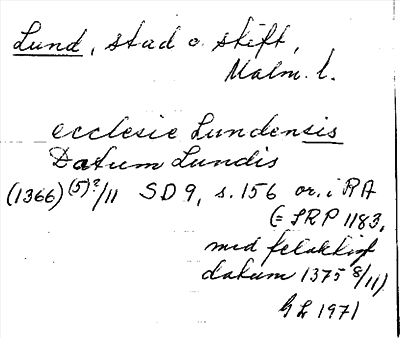 Lund, stad o. stift,
Malm. l.
ecclesie Lundensis
Datum Lundis
(1366) (5)?/11 SD 9, s. 156 or. i RA
(= SRP 1183,
med felaktigt
datum 1375 8/11)
GL 1971